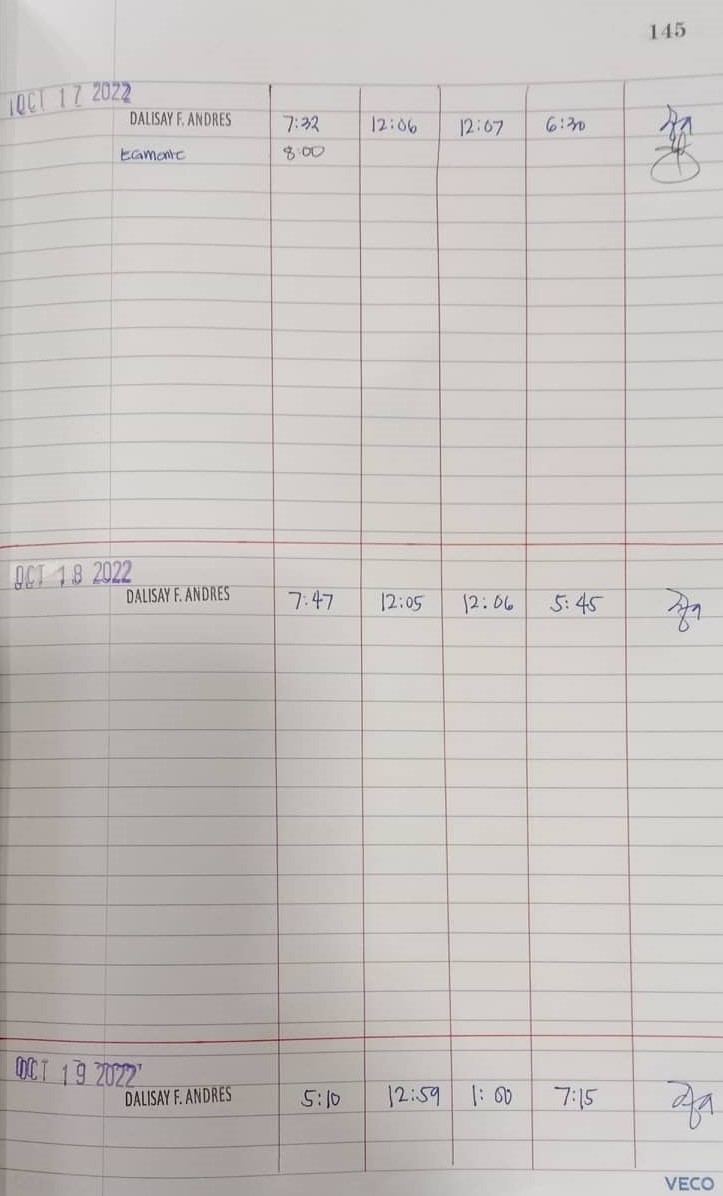 145
OCT 17 2022
DALISAY F. ANDRES 7:32 12:06 12:07 6:30
8:00
OCT 18 2022
DALISAY F. ANDRES 7:47 12:05 12:06 5:45
OCT 19 2022
DALISAY F. ANDRES 5:10 12:59 1:00 7:15
VECO